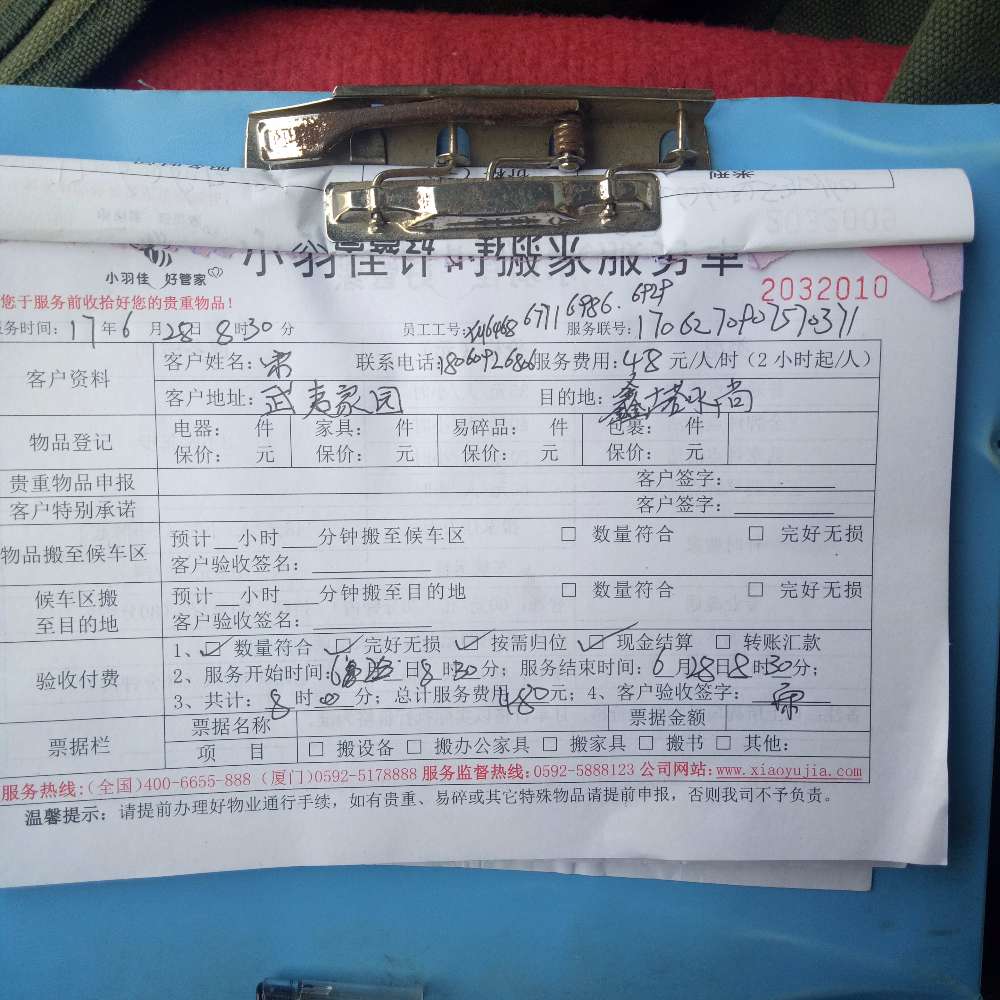 小羽佳 好管家
小羽佳计时搬家服务单
2032010
您于服务前收拾好您的贵重物品！
务时间：17年6月28日8时30分 员工工号： 6771 6986. 6929 服务联号：
客户资料
客户姓名： 联系电话：18060926806 服务费用：48元/人/时（2小时起/人）
客户地址：武夷家园 目的地：
物品登记
电器： 件 家具： 件 易碎品： 件 包裹： 件
保价： 元 保价： 元 保价： 元 保价： 元
贵重物品申报 客户签字：
客户特别承诺 客户签字：
物品搬至候车区
预计__小时___分钟搬至候车区 □ 数量符合 □ 完好无损
客户验收签名：
候车区搬至目的地
预计__小时___分钟搬至目的地 □ 数量符合 □ 完好无损
客户验收签名：
验收付费
1、☑ 数量符合 ☑ 完好无损 ☑ 按需归位 ☑ 现金结算 □ 转账汇款
2、服务开始时间： 日8时30分；服务结束时间：6月28日8时30分；
3、共计：8时 分；总计服务费用480元；4、客户验收签字：
票据栏
票据名称 票据金额
项 目 □ 搬设备 □ 搬办公家具 □ 搬家具 □ 搬书 □ 其他：
服务热线：（全国）400-6655-888（厦门）0592-5178888 服务监督热线：0592-5888123 公司网站：www.xiaoyujia.com
温馨提示：请提前办理好物业通行手续，如有贵重、易碎或其它特殊物品请提前申报，否则我司不予负责。